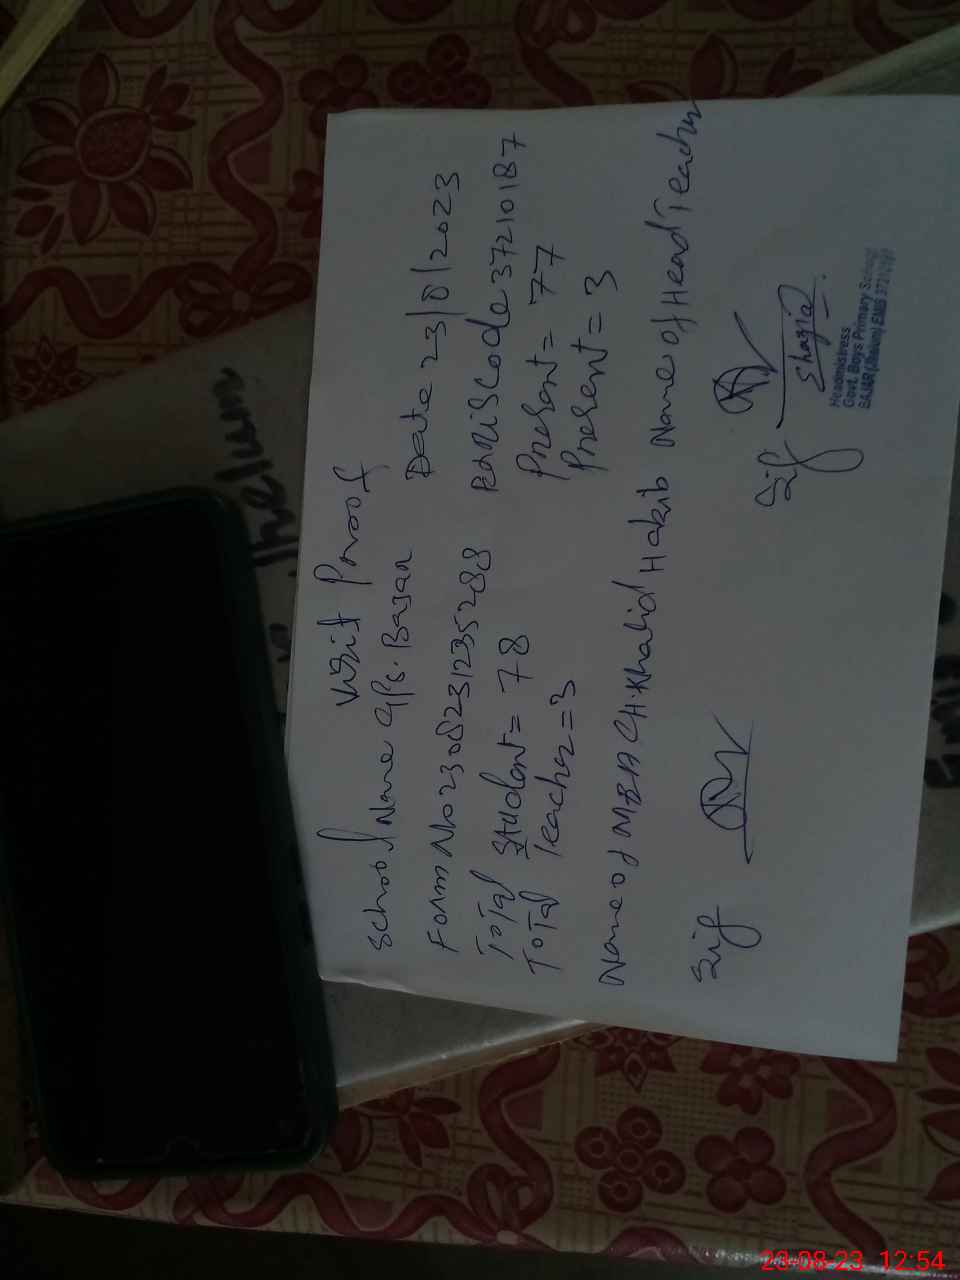 Visit Proof
School Name GPS. Bajar Date 23/8/2023
Form No 2308231235288 EMIS Code 37210187
Total Student = 78 Present = 77
Total Teacher = 3 Present = 3
Name of MEA CH. Khalid Habib Name of Head Teacher
Sig Sig
Shazia
Headmistress
Govt. Boys Primary School
BAJAR (Jhelum) EMIS 37210187
Jhelum
23-08-23 12:54